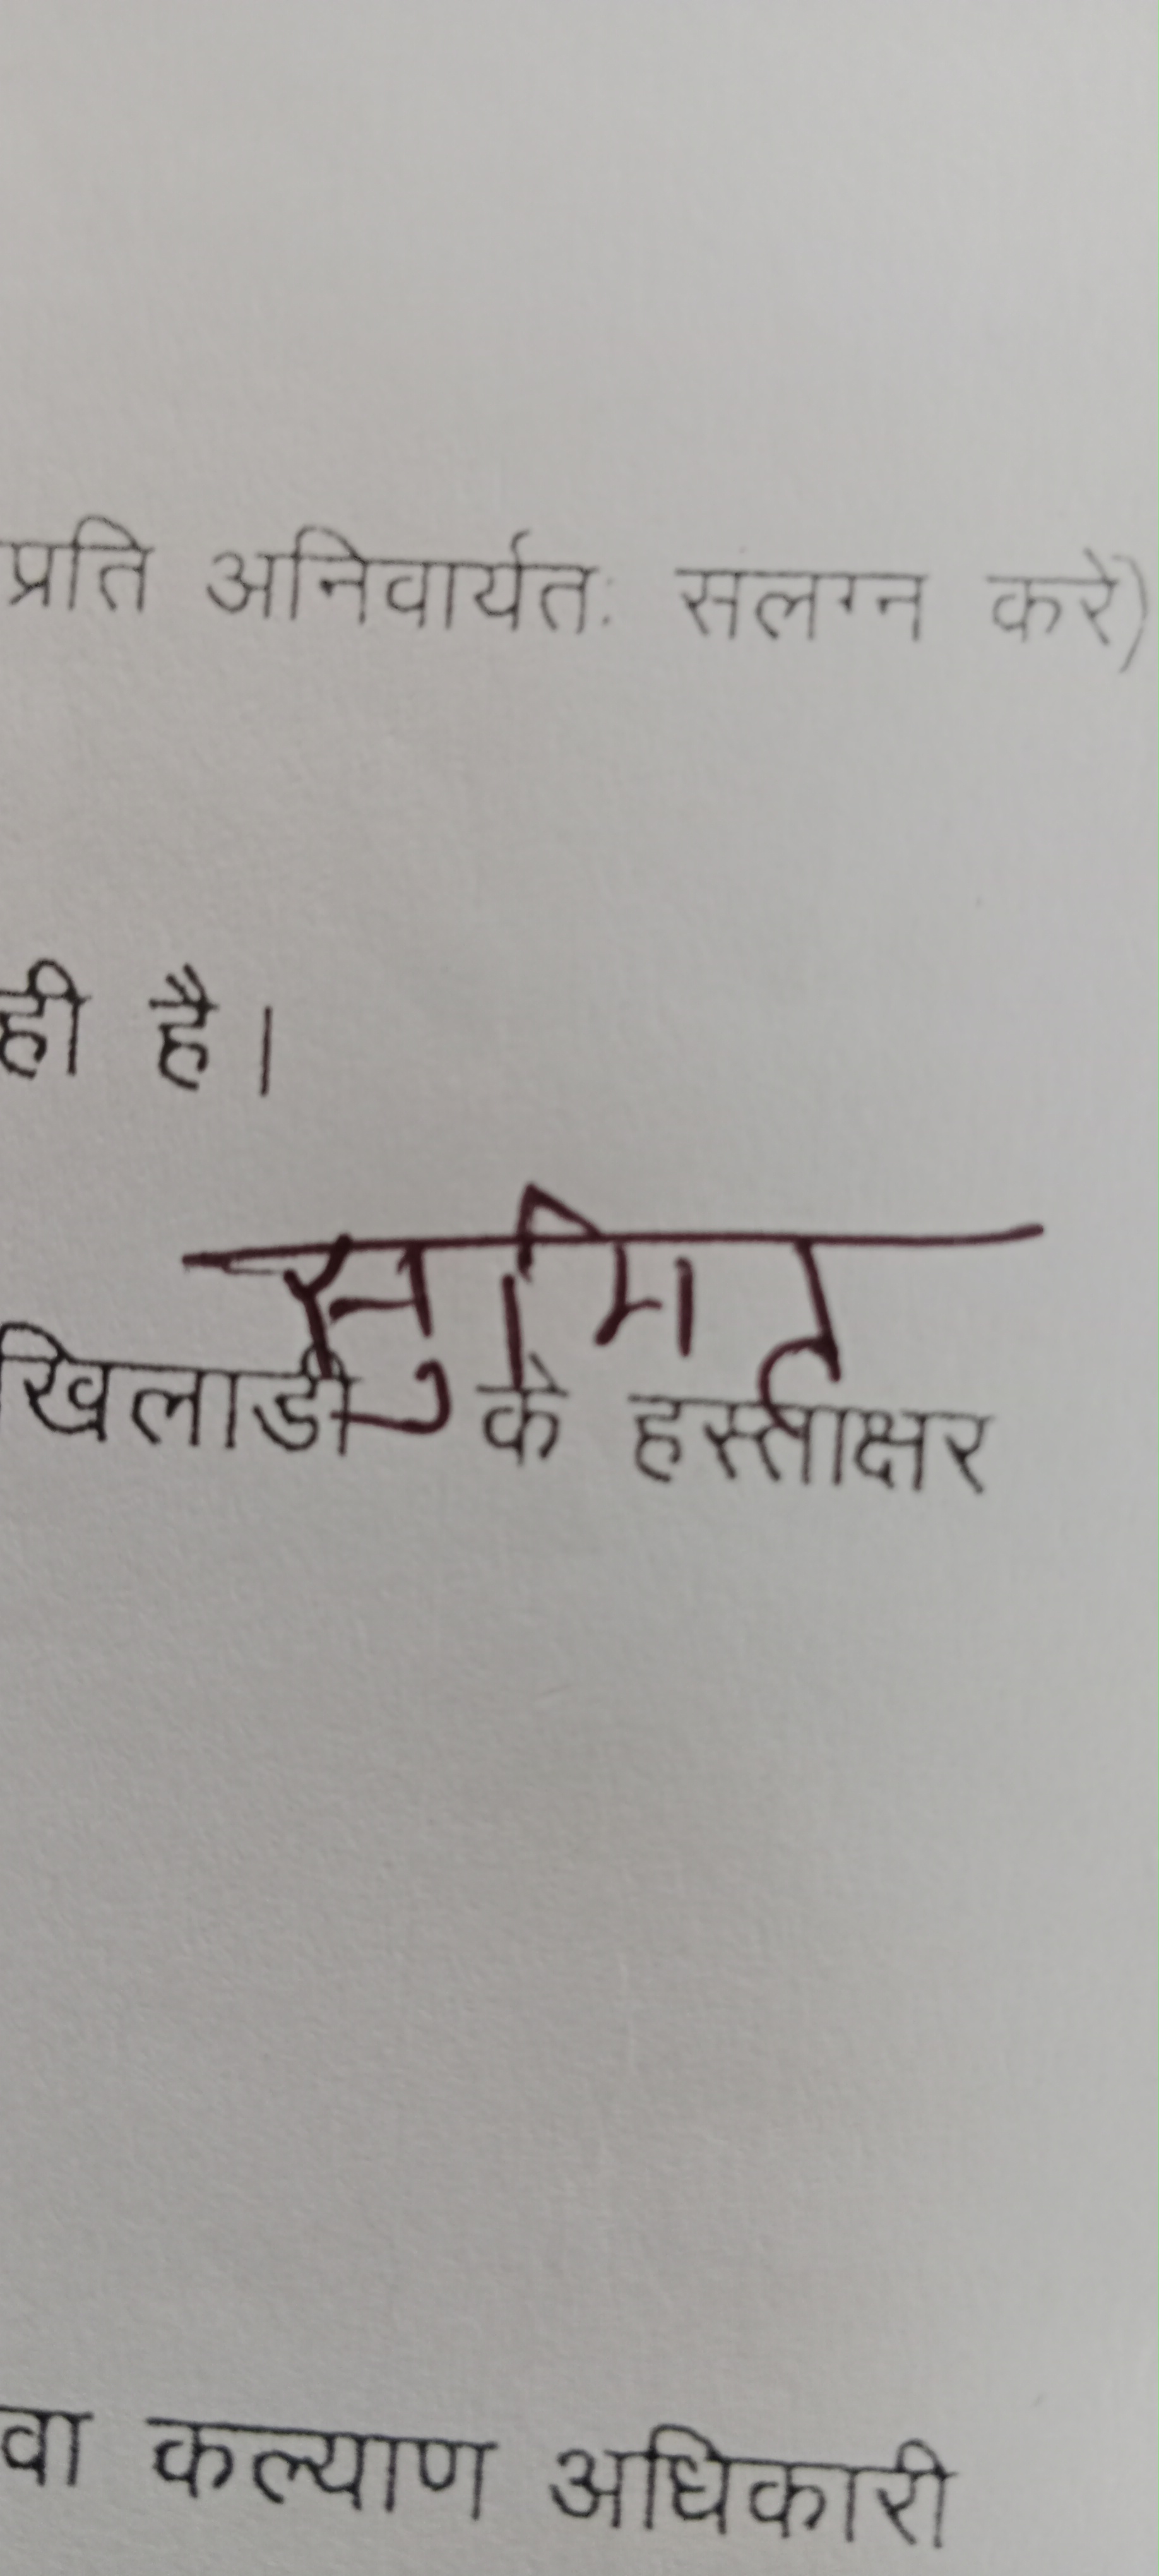 प्रति अनिवार्यतः सलग्न करें)
ही है।
सुमित
खिलाडी के हस्ताक्षर
वा कल्याण अधिकारी